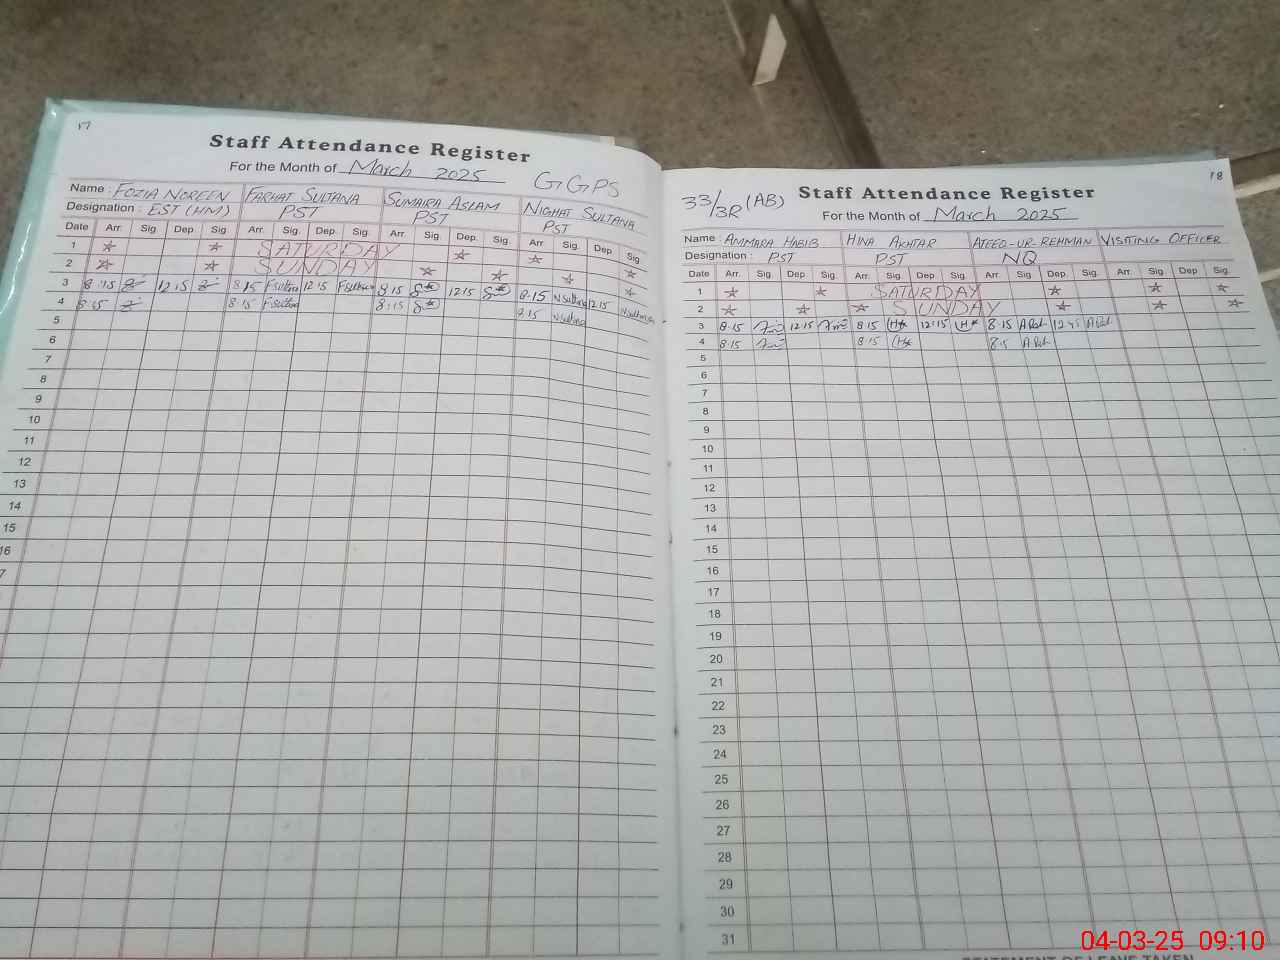 17
Staff Attendance Register
For the Month of March 2025
GGPS
Name : FOZIA NOREEN FARHAT SULTANA SUMAIRA ASLAM NIGHAT SULTANA
Designation : EST (HM) PST PST PST
Date Arr. Sig. Dep. Sig. Arr. Sig. Dep. Sig. Arr. Sig. Dep. Sig. Arr. Sig. Dep. Sig.
1 SATURDAY
2 SUNDAY
3 8:15 12:15 8:15 Fsultana 12:15 Fsultana 8:15 12:15 8:15 NSultana 12:15 NSultana
4 8:15 8:15 Fsultana 8:15 8:15 NSultana
5
6
7
8
9
10
11
12
13
14
15
16
7
18
33/3R (AB)
Staff Attendance Register
For the Month of March 2025
Name : AMMARA HABIB HINA AKHTAR ATEEQ-UR-REHMAN VISITING OFFICER
Designation : PST PST NQ
Date Arr. Sig. Dep. Sig. Arr. Sig. Dep. Sig. Arr. Sig. Dep. Sig. Arr. Sig. Dep. Sig.
1 SATURDAY
2 SUNDAY
3 8:15 12:15 8:15 12:15 8:15 12:45
4 8:15 8:15 8:5
5
6
7
8
9
10
11
12
13
14
15
16
17
18
19
20
21
22
23
24
25
26
27
28
29
30
31
STATEMENT OF LEAVE TAKEN
04-03-25 09:10